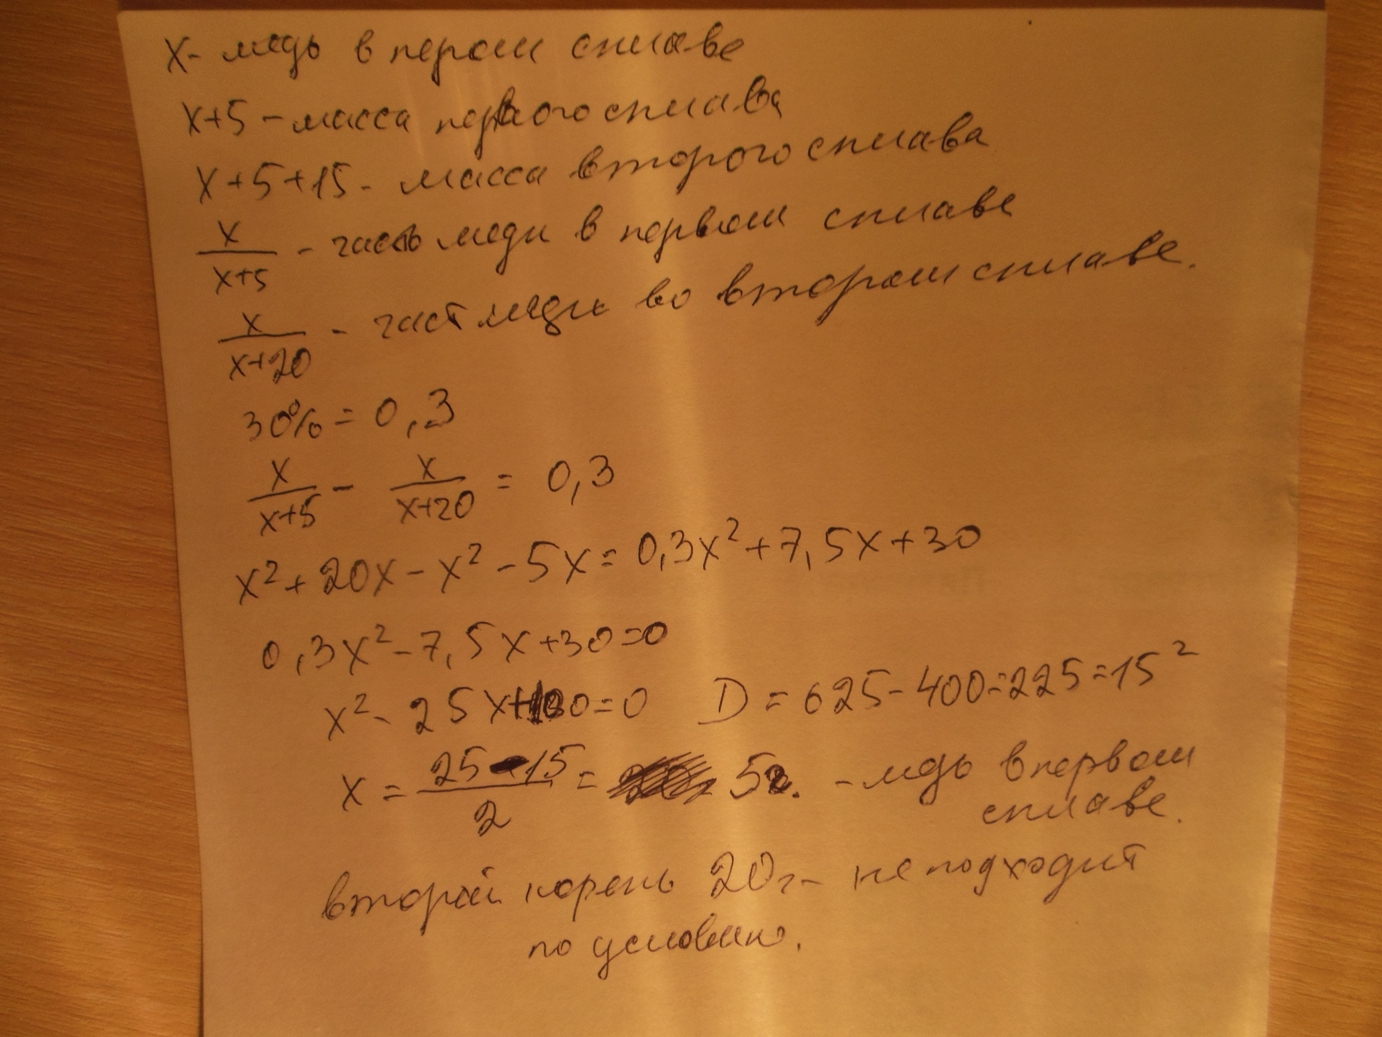 х- медь в пером сплаве
х+5 - масса первого сплава
х+5+15 - масса второго сплава
x/(x+5) - часть меди в первом сплаве
x/(x+20) - част меди во втором сплаве.
30% = 0,3
x/(x+5) - x/(x+20) = 0,3
x² + 20x - x² - 5x = 0,3x² + 7,5x + 30
0,3x² - 7,5x + 30 = 0
x² - 25x + 100 = 0 D = 625 - 400 = 225 = 15²
x = (25-15)/2 = 5г. - медь в первом
сплаве.
второй корень 20г - не подходит
по условию.